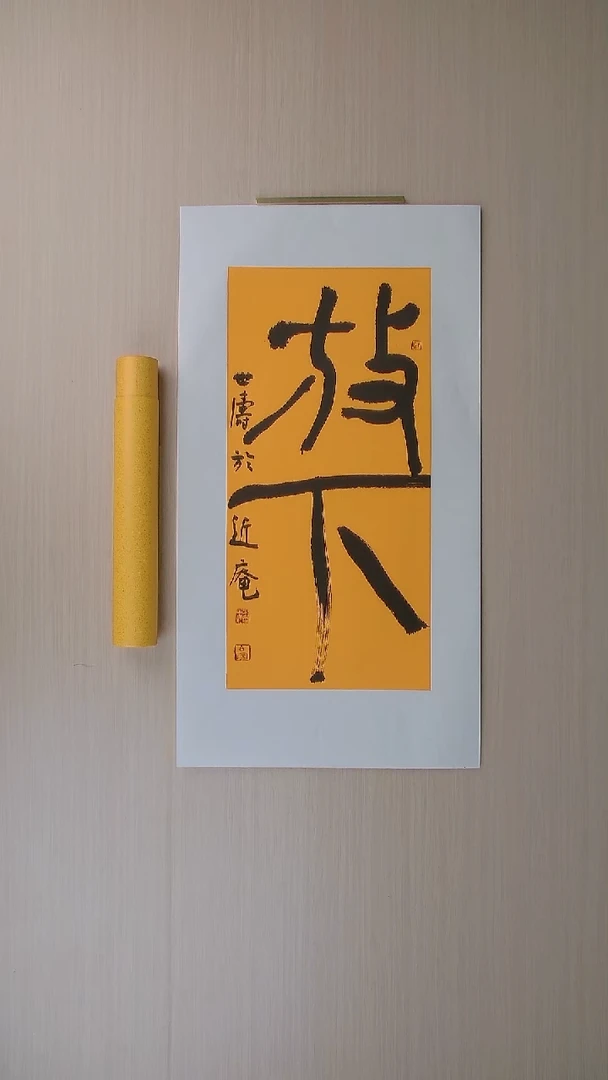 放下
世濤於近庵